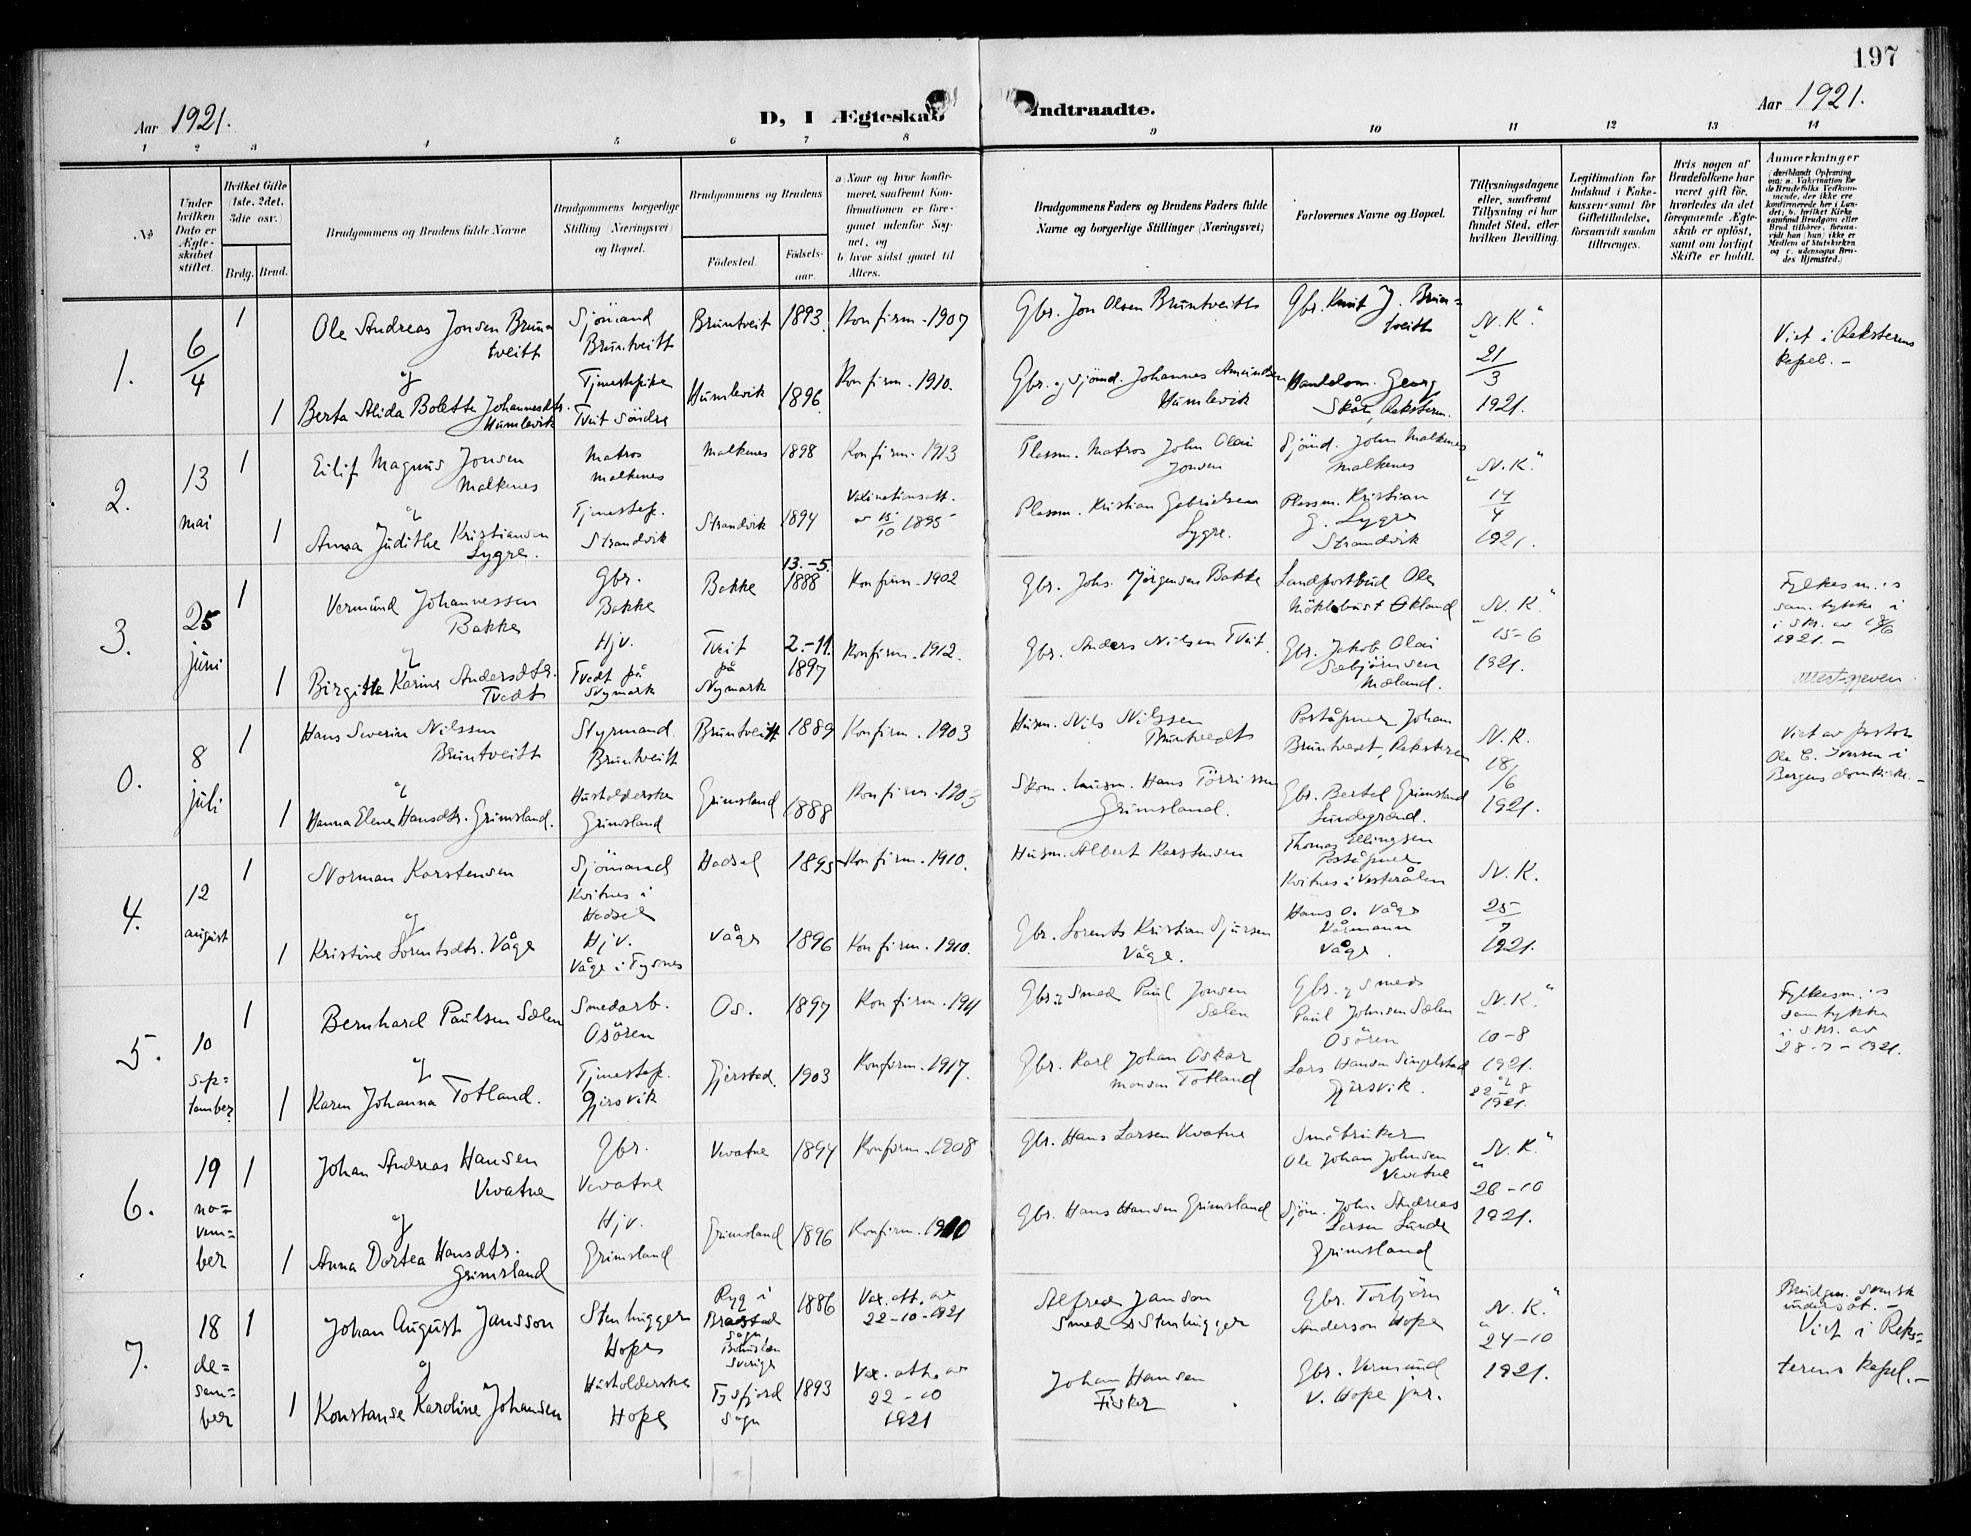 197
Aar 1921.
D, I Ægteskab Indtraadte.
Aar 1921.
1 2 3 4 5 6 7 8 9 10 11 12 13 14
No
Under hvilken Dato er Ægteskabet stiftet.
Hvilket Gifte (1ste, 2det, 3die osv.)
Brdg. Brud.
Brudgommens og Brudens fulde Navne
Brudgommens borgerlige Stilling (Næringsvei) og Bopæl.
Brudgommens og Brudens
Fødested. Fødselsaar.
a Naar og hvor konfirmeret, saafremt Konfirmationen er foregaaet udenfor Sognet, og
b hvor sidst gaaet til Alters.
Brudgommens Faders og Brudens Faders fulde Navne og borgerlige Stillinger (Næringsvei)
Forlovernes Navne og Bopæl.
Tillysningsdagene eller, saafremt Tillysning ei har fundet Sted, efter hvilken Bevilling.
Legitimation for Indskud i Enkekassen samt for Giftetilladelse, forsaavidt saadan tiltrænges.
Hvis nogen af Brudefolkene har været gift før, hvorledes da det foregaaende Ægteskab er opløst, samt om lovligt Skifte er holdt.
Anmærkninger
1. 6/4 1 Ole Andreas Jonsen Bruntveitt
Sjömand Bruntveitt
Bruntveit 1893. Konfirm. 1907
Gbr. Jon Olsen Bruntveitt
Gbr. Knut J. Bruntveitt
"N.K." 21/3 1921.
Viet i Reksterens kapel. -
og
1 Berta Alida Bolette Johannesdtr. Humlevik
Tjenestepike Tveit Söndre
Humlevik 1896. Konfirm. 1910.
Gbr. og Sjömd. Johannes Amundsen Humlevik
Handelsm. Georg Skår, Reksteren.
2. 13 mai 1 Eilif Magnus Jonsen Malkenes
Matros Malkenes
Malkenes 1898 Konfirm. 1913
Plassm. Matros John Olai Jonsen
Sjömd. John Malkenes Malkenes
"N.K." 17/4 1921.
og
1 Anna Judithe Kristiansen Lygre.
Tjenestep. Strandvik
Strandvik 1894
Vaxinationsatt. av 15/10 1895
Plassm. Kristian Gabrielsen Lygre.
Plassm. Kristian G. Lygre Strandvik
3. 25 juni 1 Vermund Johannessen Bakke
Gbr. Bakke
Bakke 13.-5. 1888 Konfirm. 1902
Gbr. Johs. Jørgensen Bakke
Landpostbud Ole Möklebust Økland
"N.K." 15-6 1921.
Fylkesm.s samtykke i skr. av 18/6 1921. -
og
1 Birgitte Karine Andersdtr. Tvedt
Hjv. Tvedt på Nymark
Tveit på Nymark 2.-11. 1897 Konfirm. 1912.
Gbr. Anders Nilsen Tveit.
Gbr. Jakob Olai Sæbjörnsen Mæland.
Attest given.
0. 8 juli 1 Hans Severin Nilssen Bruntveitt
Styrmand. Bruntveitt
Bruntveitt 1889 Konfirm. 1903
Husm. Nils Nilssen Bruntvedt
Poståpner Johan Bruntvedt, Reksteren
N.K. 18/6 1921.
Viet av pastor Ole C. Iversen i Bergens domkirke. -
og
1 Hanna Elene Hansdtr. Grimsland.
Husholderske Grimsland
Grimsland 1888 Konfirm. 1903
Skom. husm. Hans Törrissen Grimsland.
Gbr. Bertel Grimsland Lundegrend.
4. 12 august 1 Norman Karstensen
Sjömand Kvitnes i Hadsel
Hadsel 1895 Konfirm. 1910.
Husm. Albert Karstensen
Thomas Ellingsen Poståpner Kvitnes i Vesterålen
N.K. 25/7 1921.
og
1 Kristine Lorentsdtr. Våge
Hjv. Våge i Tysnes
Våge 1896 Konfirm. 1910.
Gbr. Lorents Kristian Sjursen Våge.
Hans O. Våge Vågmann Våge.
5. 10 september 1 Bernhard Paulsen Sælen
Smedarb. Osören
Os. 1897 Konfirm. 1911
Gbr. og Smed Paul Jonsen Sælen
Gbr. og Smed Paul Johnsen Sælen Osören
"N.K." 10-8 1921. og 22-8 1921.
Fylkesm.s samtykke i skr. av 28-7-1921.
og
1 Karen Johanna Totland.
Tjenestep. Gjersvik
Gjerstad. 1903 Konfirm. 1917.
Gbr. Karl Johan Oskar Monsen Totland
Lars Hansen Singelstad Gjersvik.
6. 19 november 1 Johan Andreas Hansen Vevatne
Gbr. Vevatne
Vevatne 1894 Konfirm. 1908
Gbr. Hans Larsen Vevatne
Småbruker Ole Johan Johnsen Vevatne
"N.K." 26-10 1921.
og
1 Anna Dortea Hansdtr. Grimsland
Hjv. Grimsland
Grimsland 1896 Konfirm. 1910
Gbr. Hans Hansen Grimsland
Sjöm. John Andreas Larsen Lunde Grimsland
7. 18 desember 1 Johan August Jansson
Stenhugger Hope
Ryg i Brastad sogn, Bohuslæn Sverige 1886
Vax. att. av 22-10-1921
Alfred Janson Smed & Stenhugger
Gbr. Torbjörn Anderson Hope
"N.K." 24-10 1921.
Brudgm. svensk undersåt. - Viet i Reksterens kapel. -
og
1 Konstanse Karoline Johansen
Husholderske Hope
Tysfjord sogn 1893
Vax. att. av 22-10 1921
Johan Hansen Fisker
Gbr. Vermund V. Hope jnr.